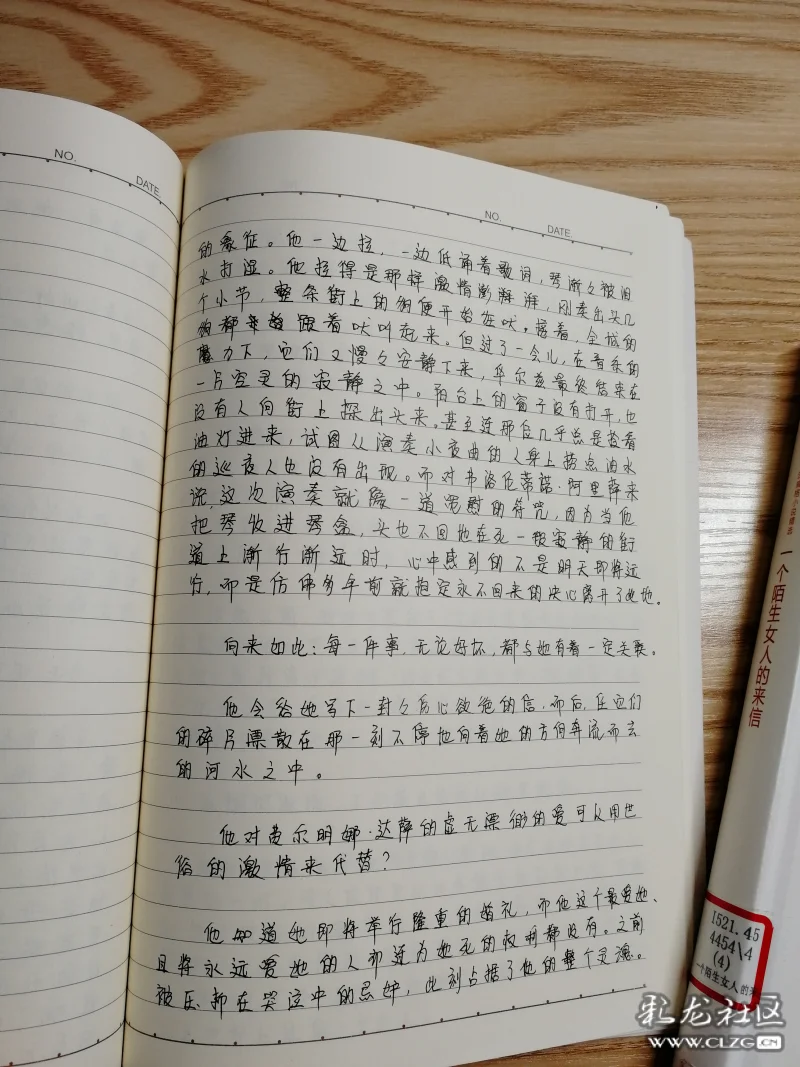 NO.
DATE
NO.
DATE
的象征。他一边拉，一边低诵着歌词，琴渐々被泪
水打湿。他拉得是那样激情澎湃，刚奏出头几
个小节，整条街上的狗便开始狂吠。接着，全城的
狗都跟着吠叫起来。但过了一会儿，在音乐的
魔力下，它们又慢々安静下来，华尔兹最终结束在
一片空灵的寂静之中。阳台上的窗子没有打开，也
没有人向街上探出头来。甚至连那位几乎总是提着
油灯进来，试图从演奏小夜曲的人身上捞点油水
的巡夜人也没有出现。而对弗洛伦蒂诺·阿里萨来
说，这次演奏就像一道宽慰的符咒，因为当他
把琴收进琴盒，头也不回地在死一般寂静的街
道上渐行渐远时，心中感到的不是明天即将远
行，而是仿佛多年前就抱定永不回来的决心离开了此地。
向来如此：每一件事，无论好坏，都与她有着一定关联。
他会给她写下一封々伤心欲绝的信，而后，任它们
的碎片漂散在那一刻不停地向着她的方向奔流而去
的河水之中。
他对费尔明娜·达萨的虚无漂缈的爱可以用世
俗的激情来代替？
他知道她即将举行隆重的婚礼，而他这个最爱她、
且将永远爱她的人却连为她死的权利都没有。之前
被压抑在哭泣中的忌妒，此刻占据了他的整个灵魂。
一个陌生女人的来信
I521.45
4454\4
(4)
一个陌生女人的来
彩龙社区
www.CLZG.CN